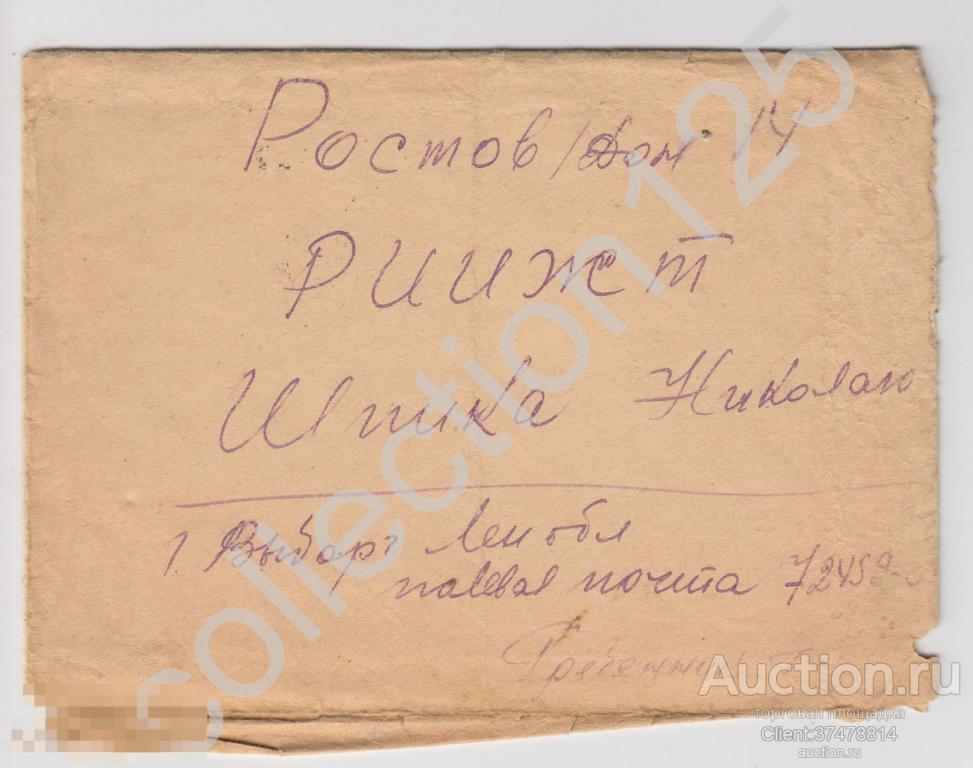 Ростов/Дон 14
РИИЖТ
Штика Николаю
г. Выборг Лен обл
палевая почта 72452
Гребенник
Collection 125
Auction.ru
торговая площадка
Client:37478814
auction.ru